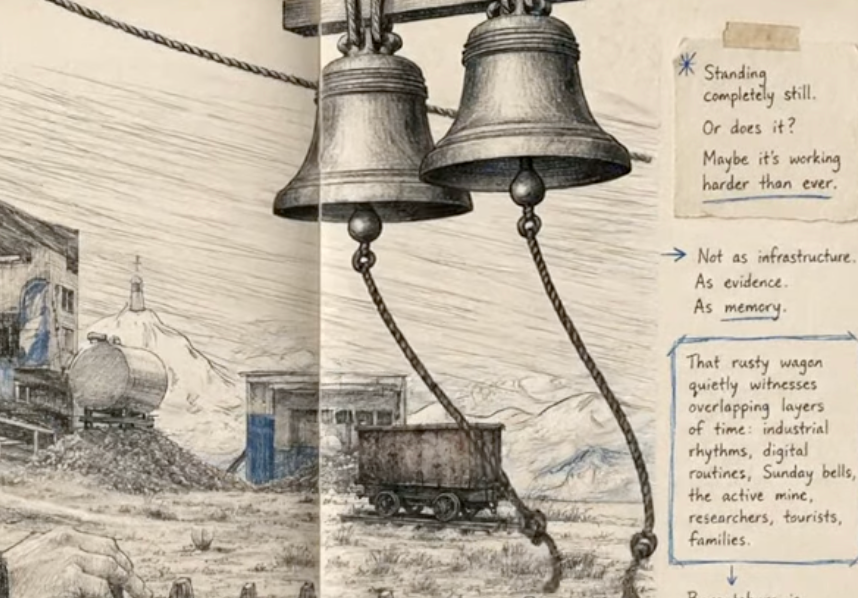 Standing
completely still.
Or does it?
Maybe it's working
harder than ever.
Not as infrastructure.
As evidence.
As memory.
That rusty wagon
quietly witnesses
overlapping layers
of time: industrial
rhythms, digital
routines, Sunday bells,
the active mine,
researchers, tourists,
families.